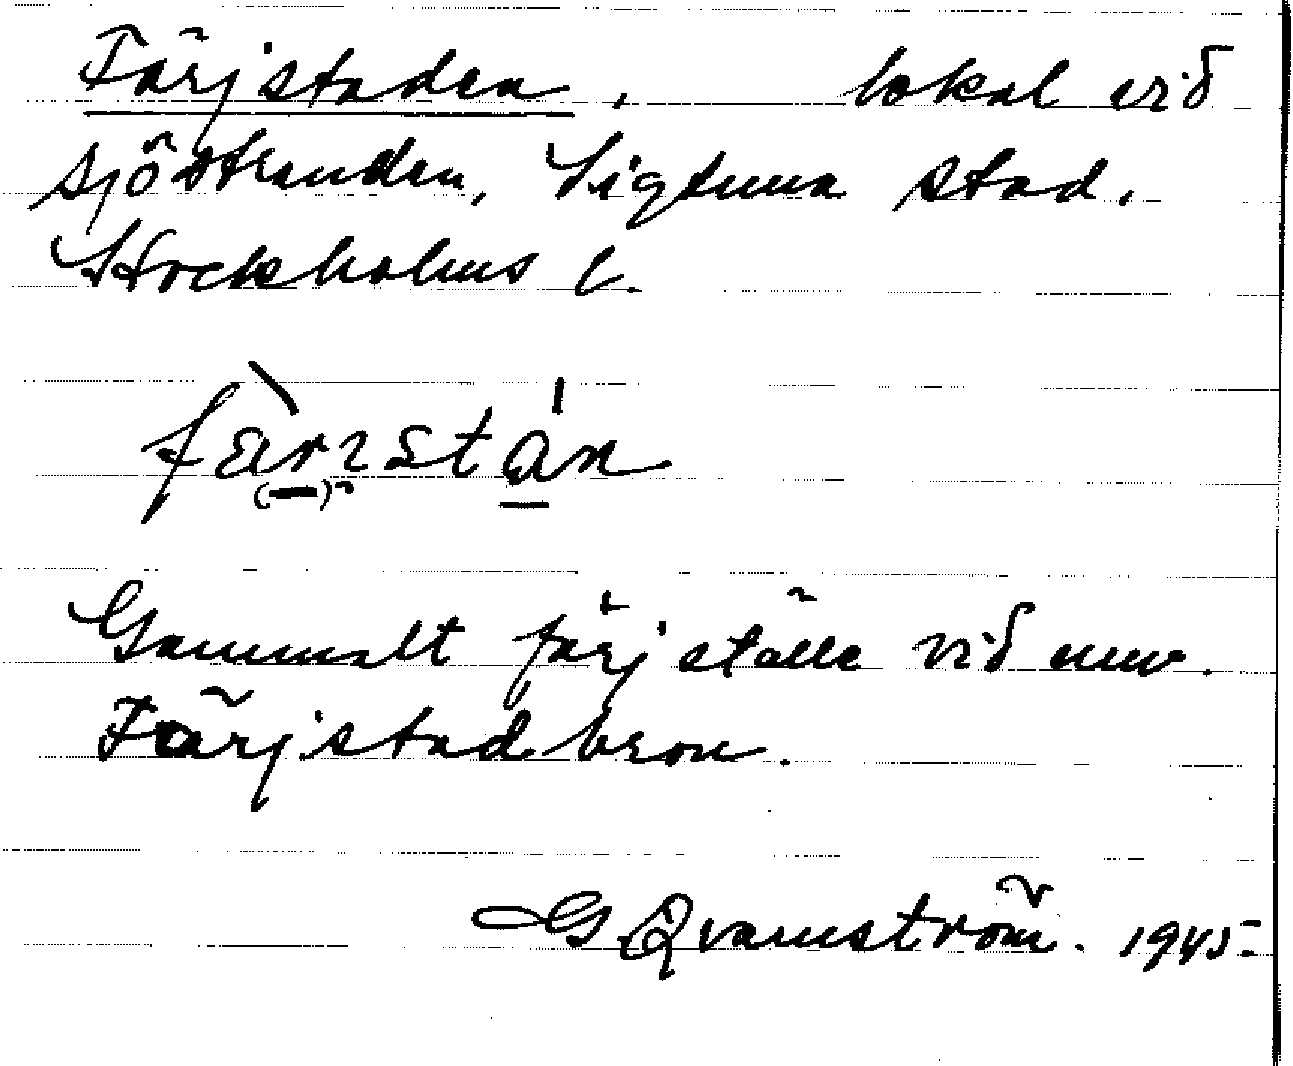 Färjstaden, lokal vid
sjöstranden, Sigtuna stad.
Stockholms l.
Gammalt färjställe vid nuv.
Färjstadbron.
G Qvarnström. 1945